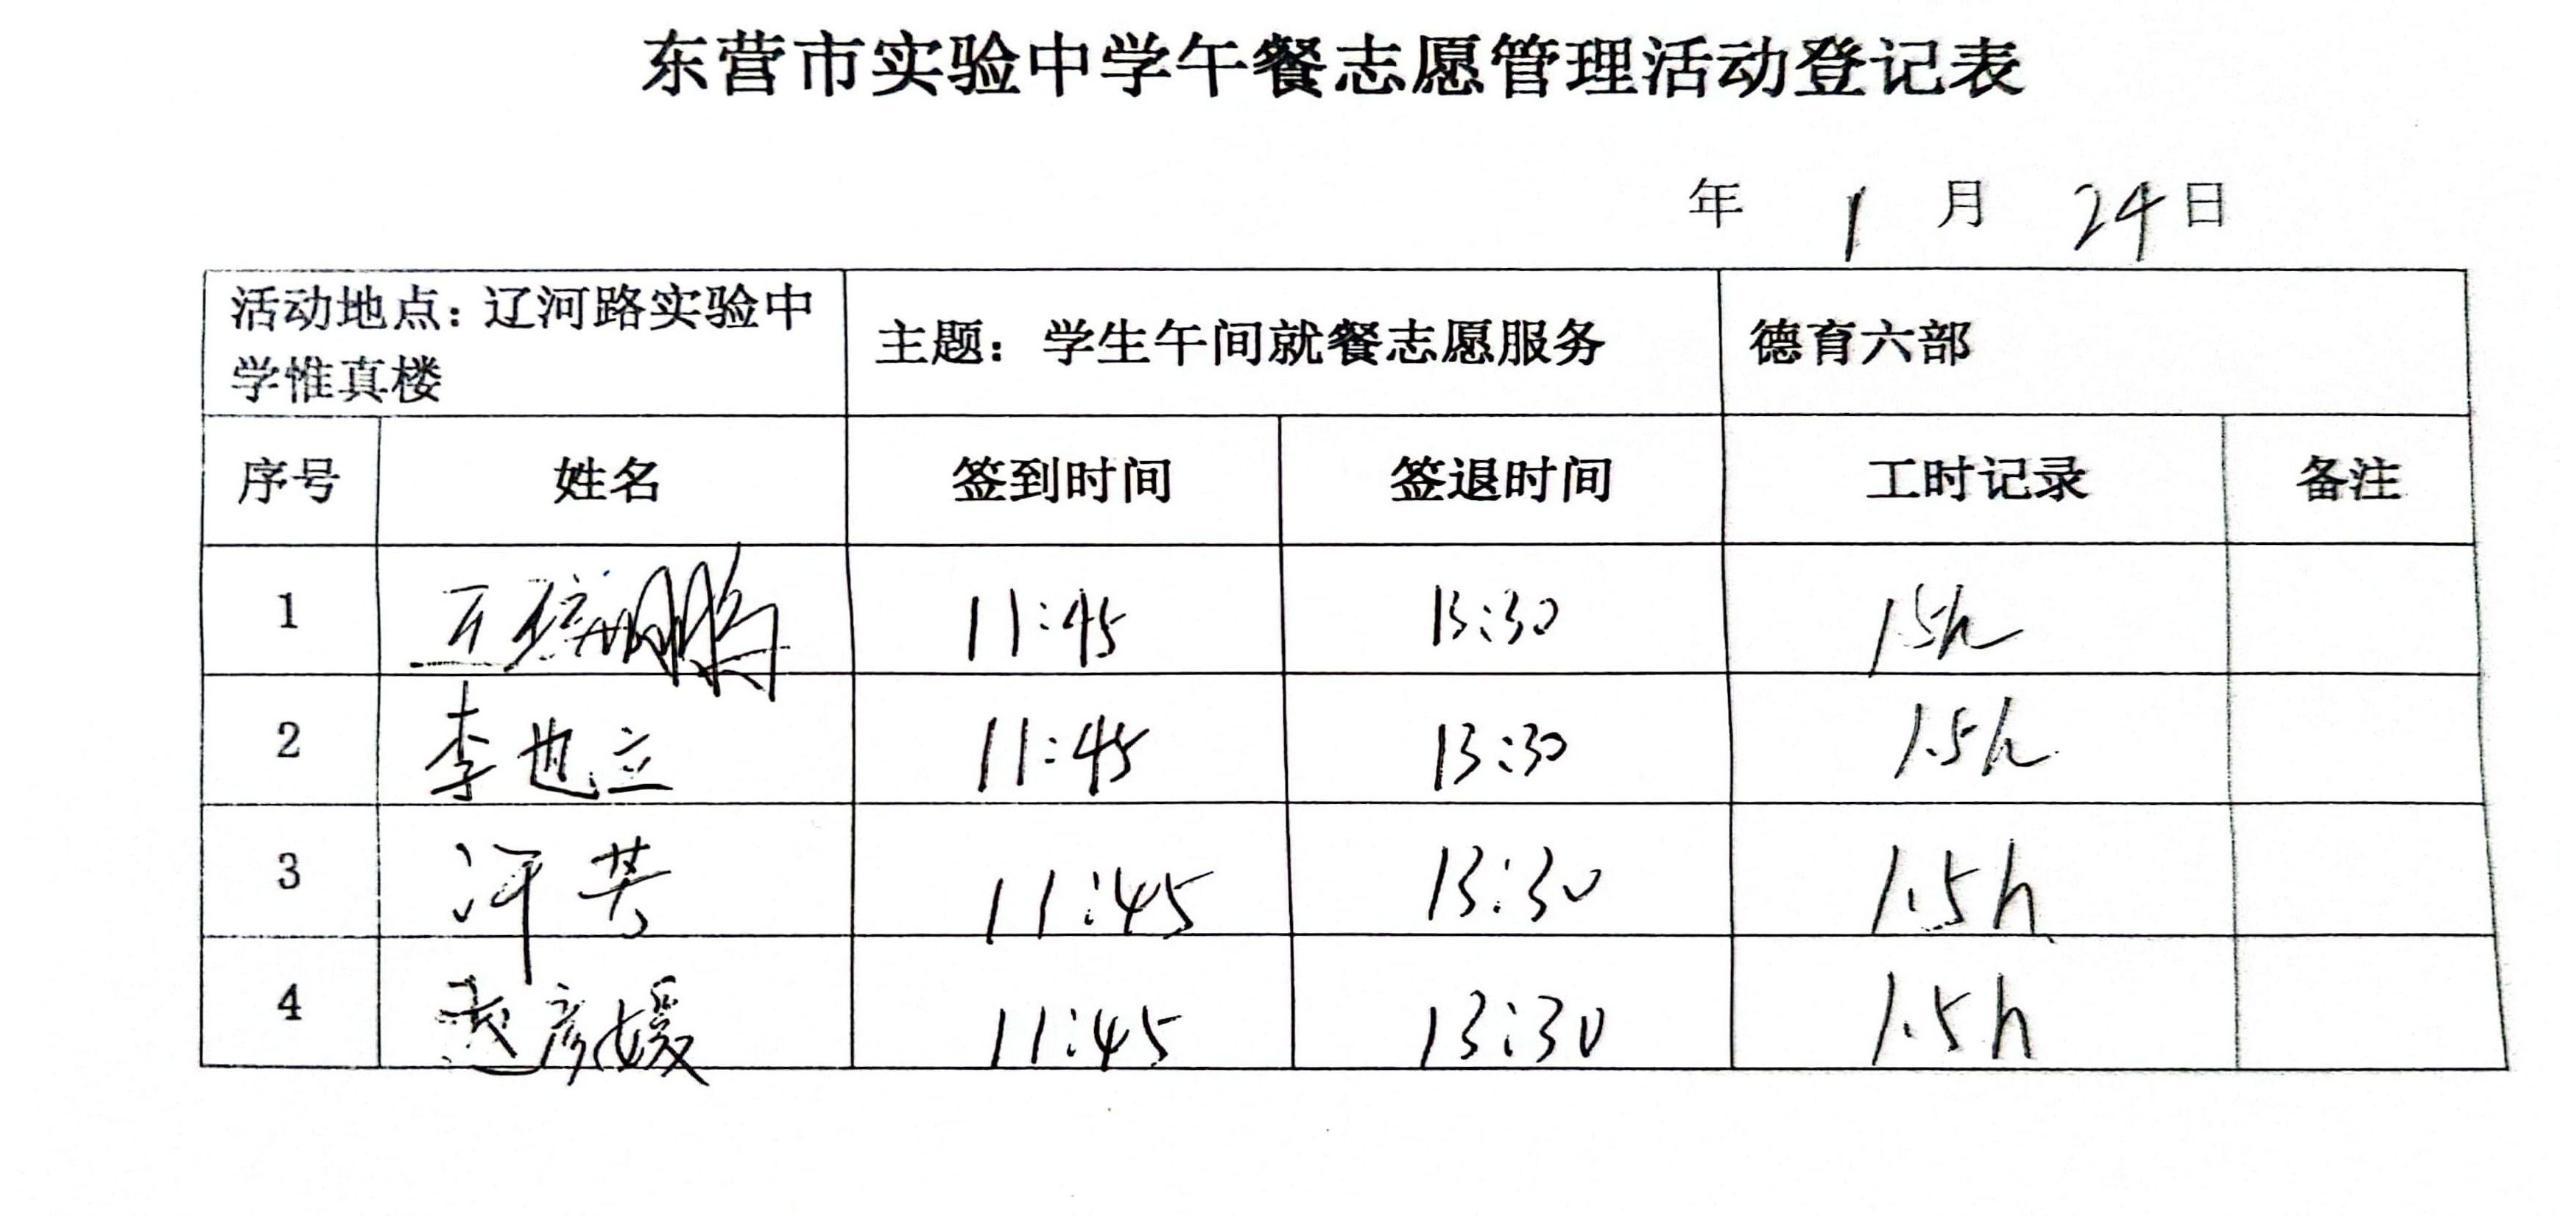 东营市实验中学午餐志愿管理活动登记表
年 1 月 24 日
活动地点：辽河路实验中学惟真楼 主题：学生午间就餐志愿服务 德育六部
序号 姓名 签到时间 签退时间 工时记录 备注
1 11:45 13:30 1.5h
2 李也立 11:45 13:30 1.5h
3 11:45 13:30 1.5h
4 赵彦媛 11:45 13:30 1.5h